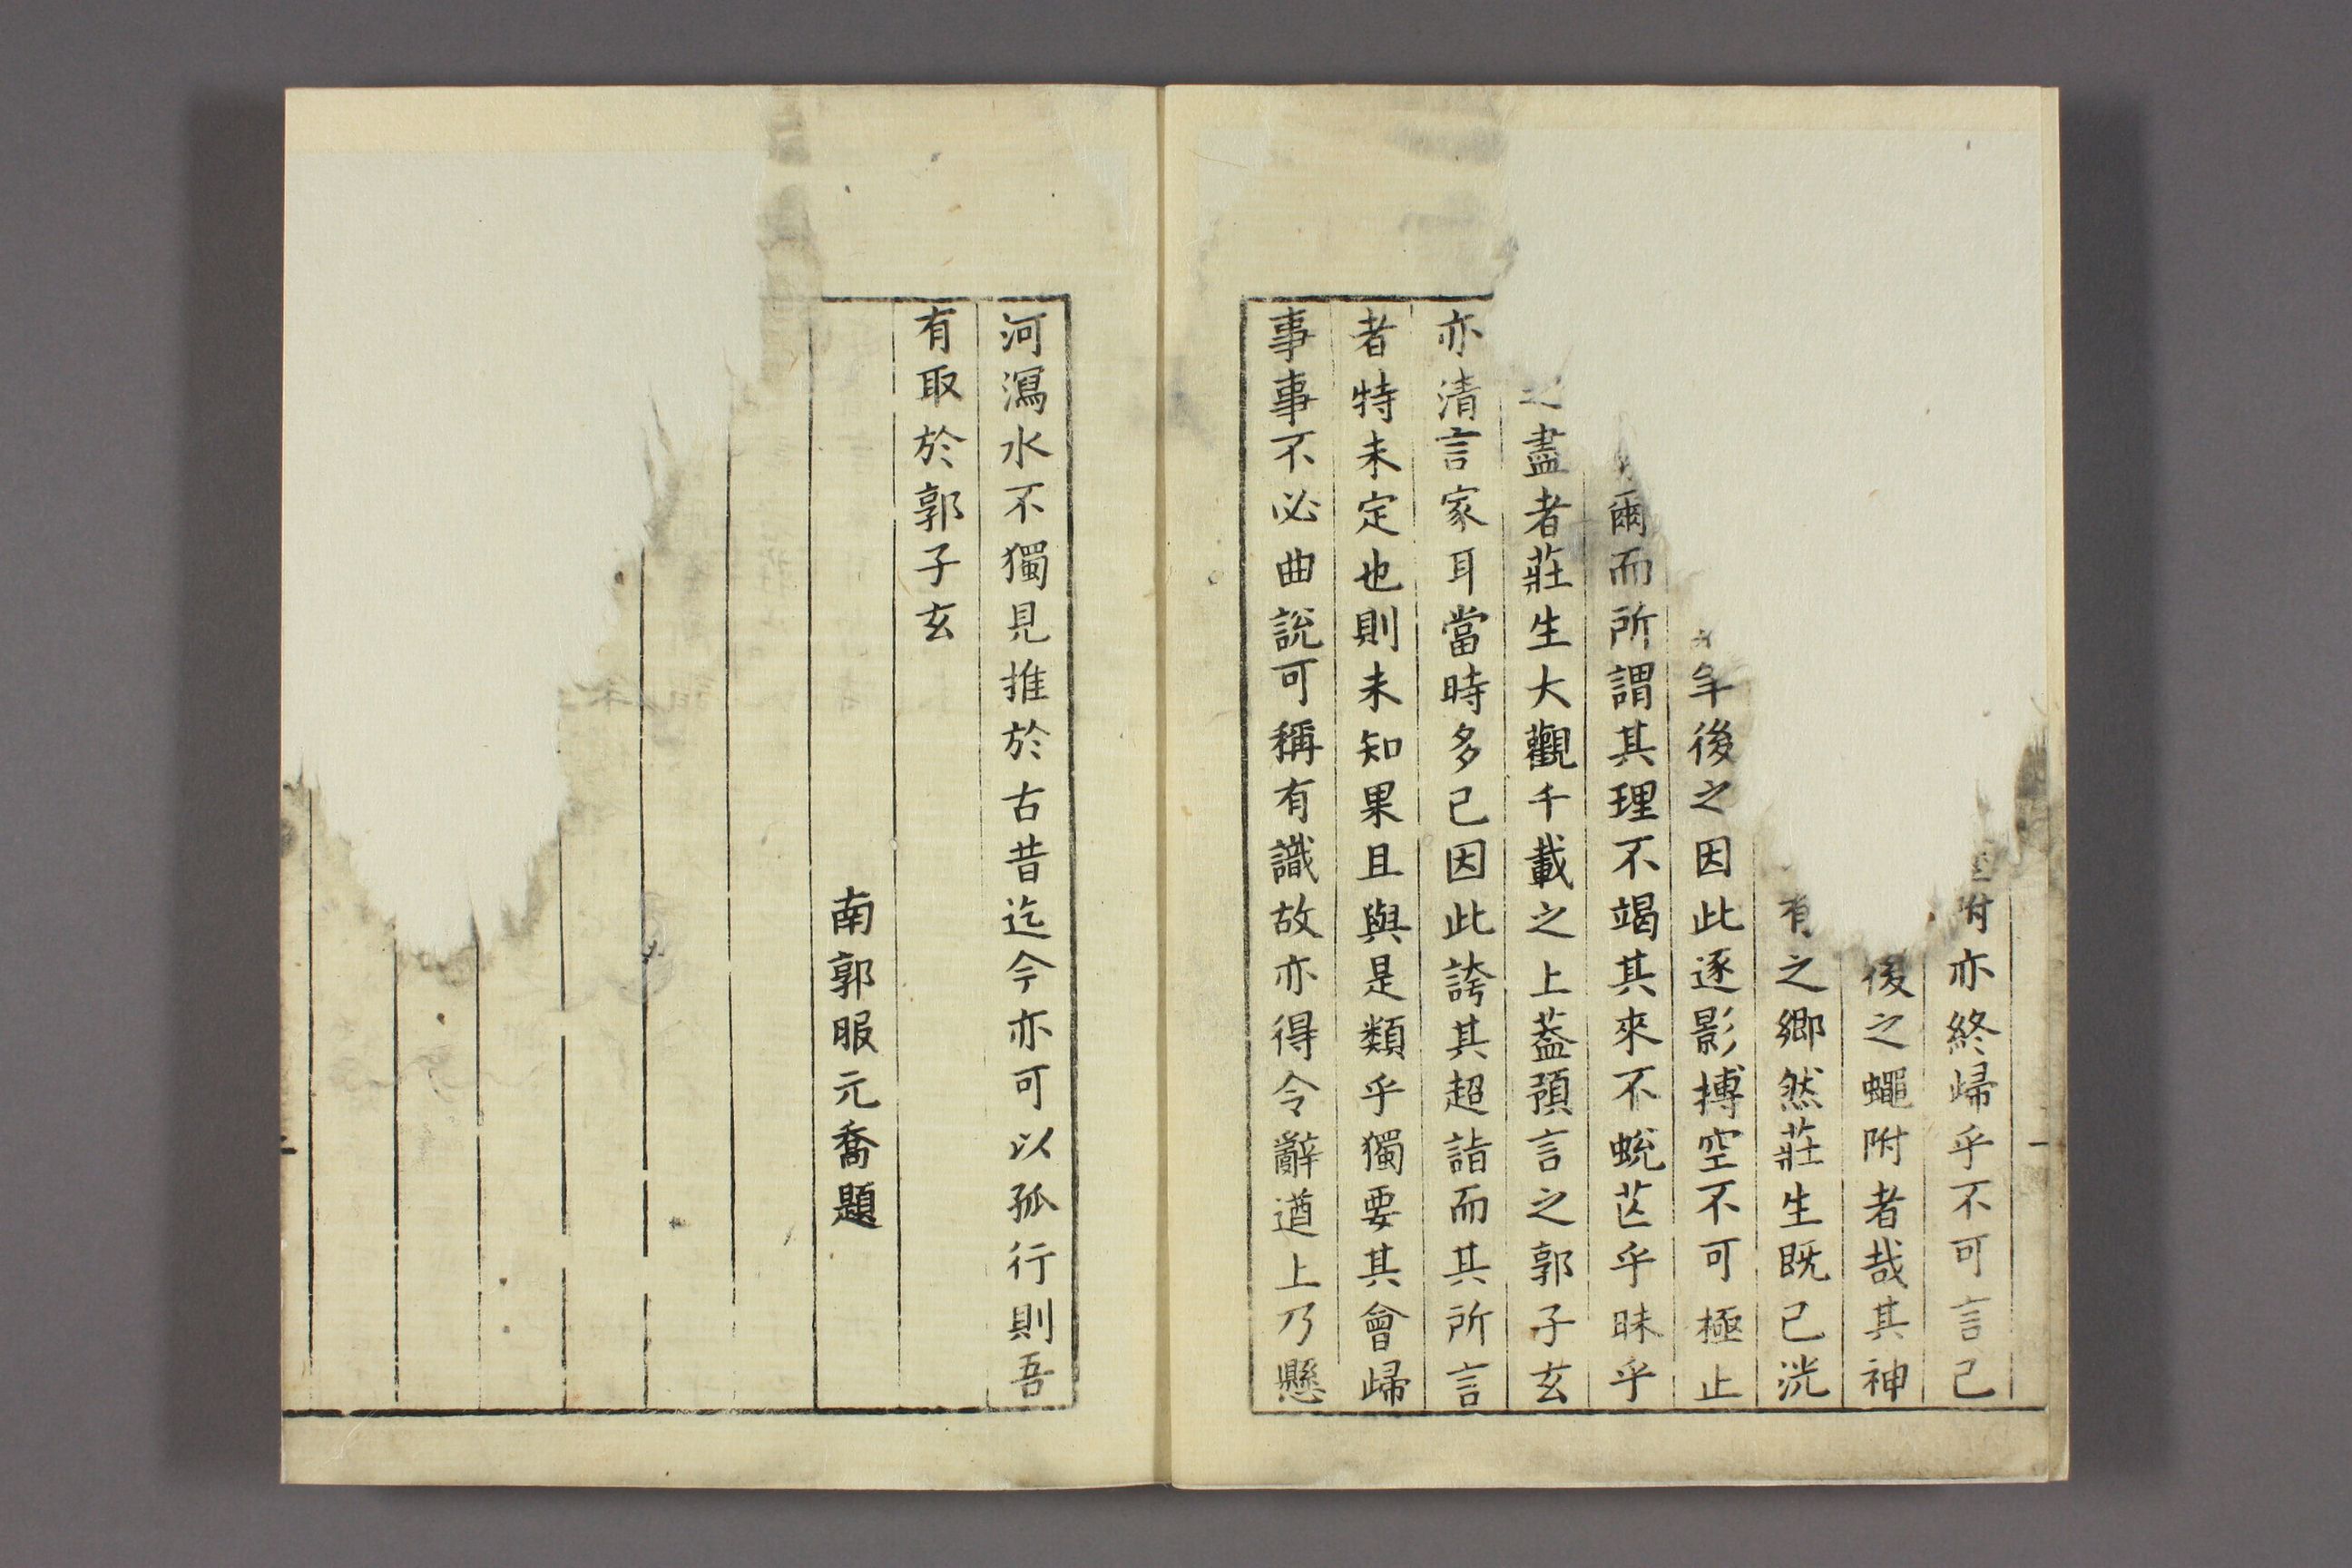 附亦終歸乎不可言已
後之蠅附者哉其神
有之鄉然莊生既已洸
年後之因此逐影搏空不可極止
爾而所謂其理不竭其來不蛻芒乎昧乎
之盡者莊生大觀千載之上蓋預言之郭子玄
亦清言家耳當時多已因此誇其超詣而其所言
者特未定也則未知果且與是類乎獨要其會歸
事事不必曲說可稱有識故亦得令辭遒上乃懸
河瀉水不獨見推於古昔迄今亦可以孤行則吾
有取於郭子玄
南郭服元喬題
一
二